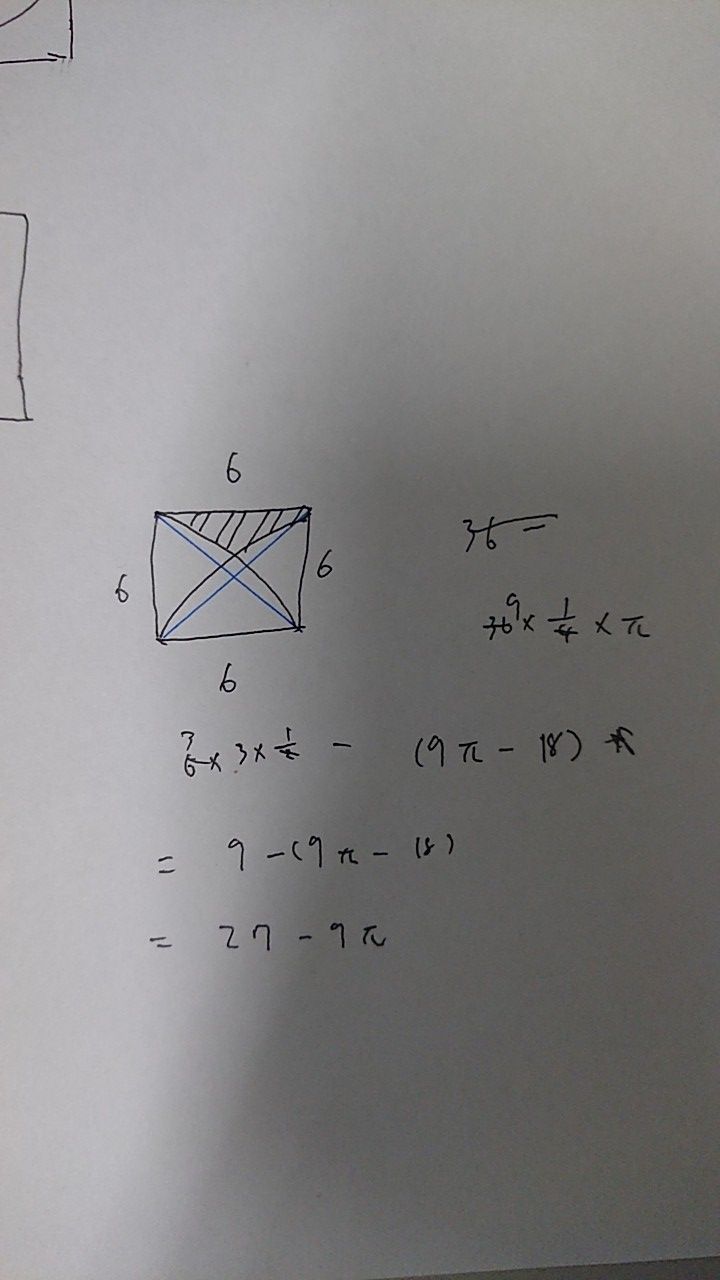 6
6
6
6
36 =
36 9 × 1/4 × π
6 3 × 3 × 1/2 - (9π - 18)
= 9 - (9π - 18)
= 27 - 9π